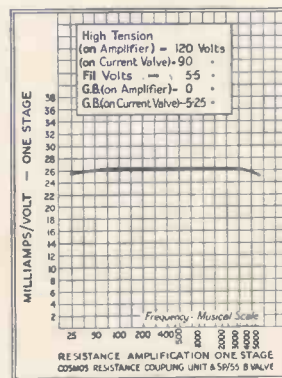 High Tension
(on Amplifier) - 120 Volts
(on Current Valve) - 90 "
Fil Volts - 5·5 "
G.B.(on Amplifier) - 0 "
G.B.(on Current Valve) - 5·25 "
MILLIAMPS/VOLT — ONE STAGE
38
36
34
32
30
28
26
24
22
20
18
16
14
12
10
8
6
4
2
Frequency - Musical Scale
25
50
100
200
400
500
1000
2000
4000
8000
RESISTANCE AMPLIFICATION ONE STAGE
COSMOS RESISTANCE COUPLING UNIT & SP/55 B VALVE